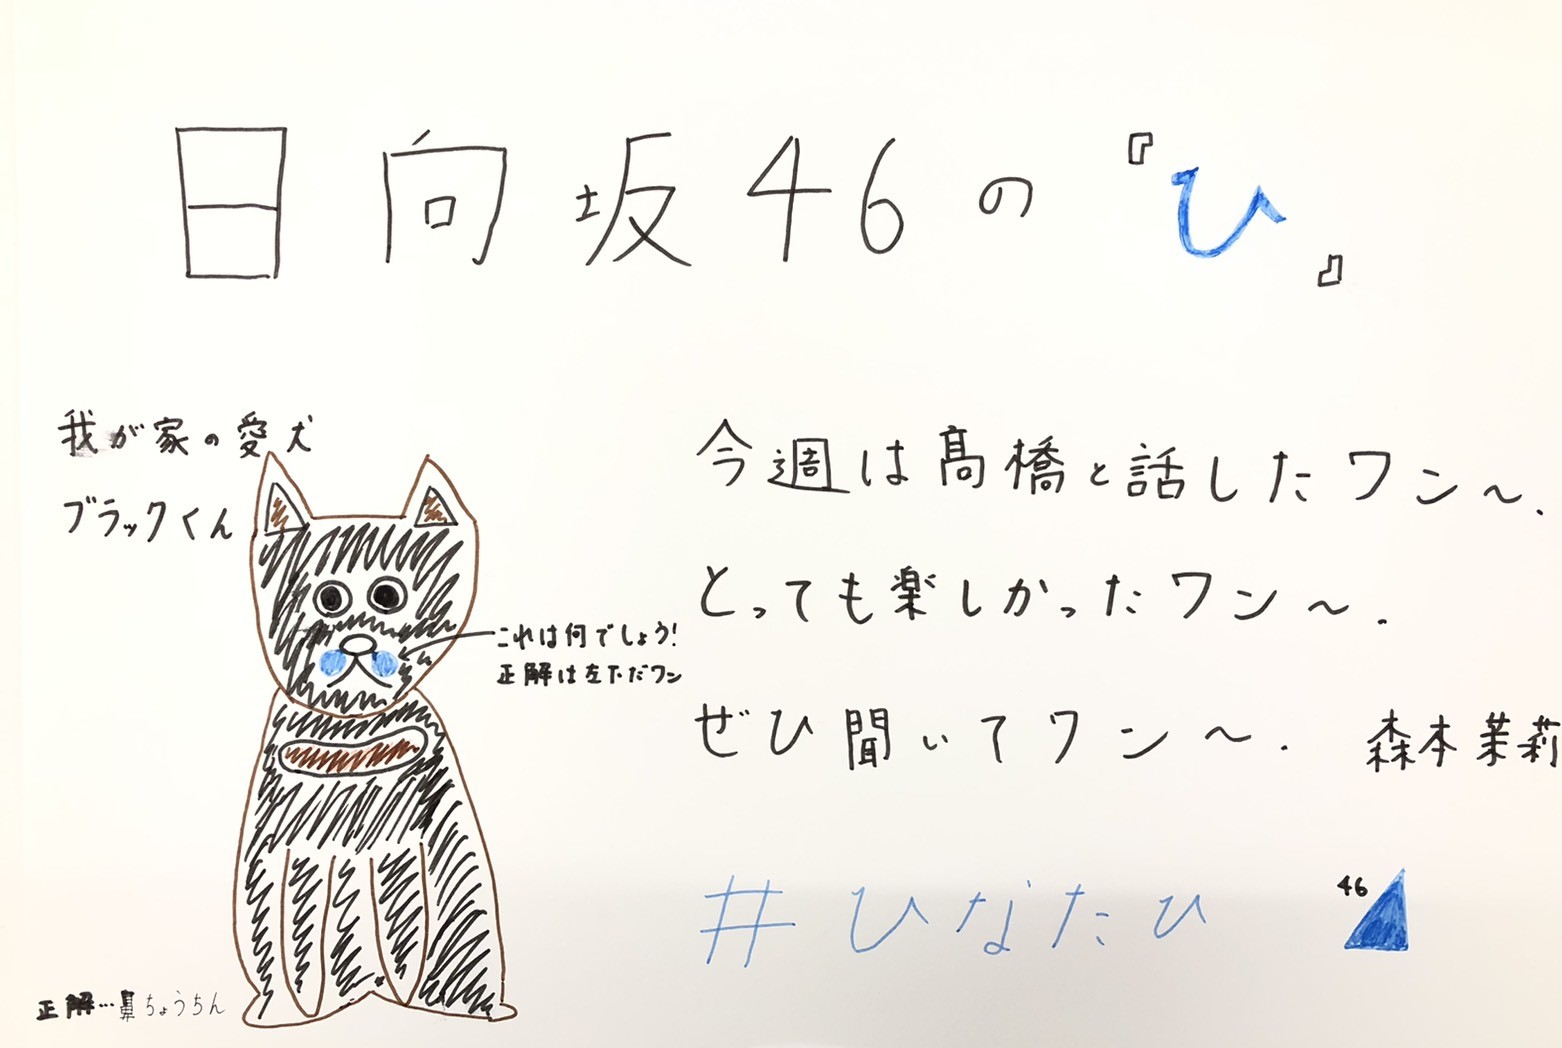 日向坂46の『ひ』
我が家の愛犬
ブラックくん
これは何でしょう!
正解は左下だワン
今週は髙橋と話したワン～.
とっても楽しかったワン～.
ぜひ聞いてワン～. 森本茉莉
#ひなたひ
46
正解…鼻ちょうちん